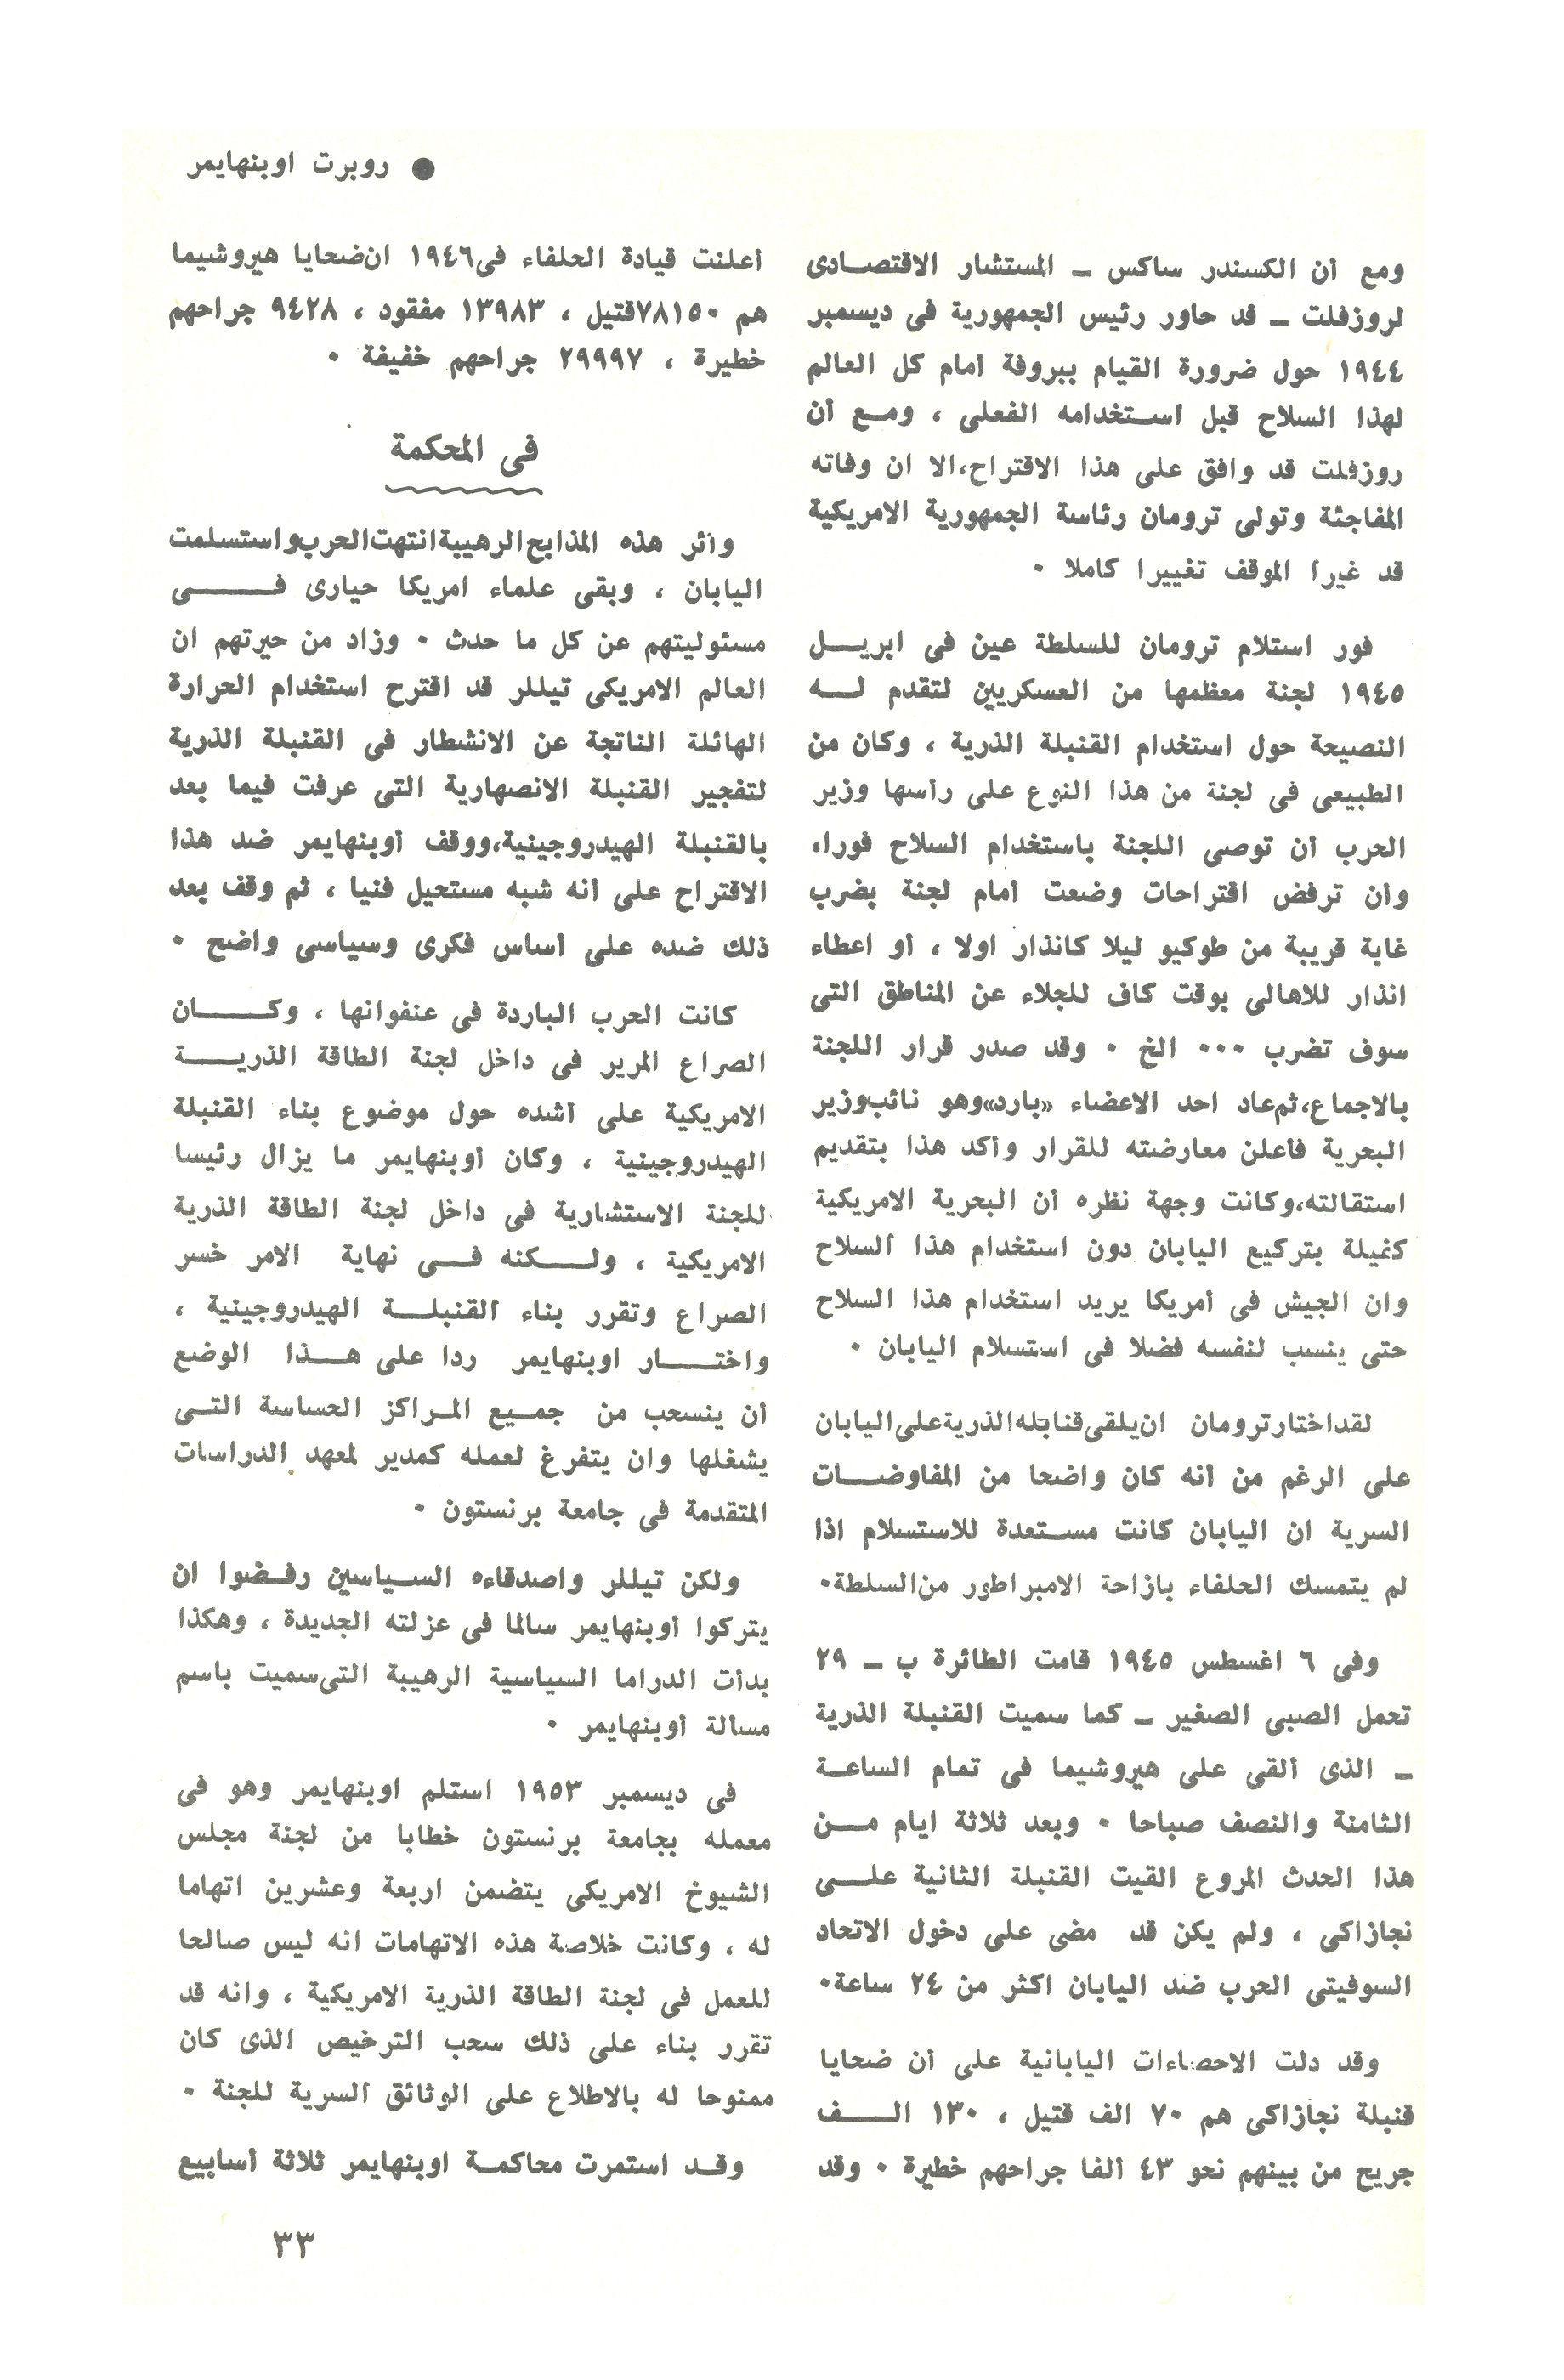 ● روبرت اوبنهايمر
ومع أن الكسندر ساكس ــ المستشار الاقتصادى
لروزفلت ــ قد حاور رئيس الجمهورية فى ديسمبر
١٩٤٤ حول ضرورة القيام ببروفة أمام كل العالم
لهذا السلاح قبل استخدامه الفعلى ، ومع أن
روزفلت قد وافق على هذا الاقتراح،الا ان وفاته
المفاجئة وتولى ترومان رئاسة الجمهورية الامريكية
قد غيرا الموقف تغييرا كاملا ٠
فور استلام ترومان للسلطة عين فى ابريل
١٩٤٥ لجنة معظمها من العسكريين لتقدم له
النصيحة حول استخدام القنبلة الذرية ، وكان من
الطبيعى فى لجنة من هذا النوع على رأسها وزير
الحرب أن توصى اللجنة باستخدام السلاح فورا،
وأن ترفض اقتراحات وضعت أمام لجنة بضرب
غابة قريبة من طوكيو ليلا كانذار اولا ، أو اعطاء
انذار للاهالى بوقت كاف للجلاء عن المناطق التى
سوف تضرب ٠٠٠ الخ ٠ وقد صدر قرار اللجنة
بالاجماع،ثم عاد احد الاعضاء «بارد»وهو نائب وزير
البحرية فأعلن معارضته للقرار وأكد هذا بتقديم
استقالته،وكانت وجهة نظره أن البحرية الامريكية
كفيلة بتركيع اليابان دون استخدام هذا السلاح
وان الجيش فى أمريكا يريد استخدام هذا السلاح
حتى ينسب لنفسه فضلا فى استسلام اليابان ٠
لقد اختار ترومان ان يلقى قنابله الذرية على اليابان
على الرغم من أنه كان واضحا من المفاوضات
السرية ان اليابان كانت مستعدة للاستسلام اذا
لم يتمسك الحلفاء بازاحة الامبراطور من السلطة٠
وفى ٦ اغسطس ١٩٤٥ قامت الطائرة ب ــ ٢٩
تحمل الصبى الصغير ــ كما سميت القنبلة الذرية
ــ الذى ألقى على هيروشيما فى تمام الساعة
الثامنة والنصف صباحا ٠ وبعد ثلاثة ايام من
هذا الحدث المروع القيت القنبلة الثانية على
نجازاكى ، ولم يكن قد مضى على دخول الاتحاد
السوفيتى الحرب ضد اليابان اكثر من ٢٤ ساعة٠
وقد دلت الاحصاءات اليابانية على أن ضحايا
قنبلة نجازاكى هم ٧٠ الف قتيل ، ١٣٠ الف
جريح من بينهم نحو ٤٣ ألفا جراحهم خطيرة ٠ وقد
أعلنت قيادة الحلفاء فى ١٩٤٦ ان ضحايا هيروشيما
هم ٧٨١٥٠ قتيل ، ١٣٩٨٣ مفقود ، ٩٤٢٨ جراحهم
خطيرة ، ٢٩٩٩٧ جراحهم خفيفة ٠
فى المحكمة
وأثر هذه المذابح الرهيبة انتهت الحرب واستسلمت
اليابان ، وبقى علماء امريكا حيارى فى
مسئوليتهم عن كل ما حدث ٠ وزاد من حيرتهم ان
العالم الامريكى تيللر قد اقترح استخدام الحرارة
الهائلة الناتجة عن الانشطار فى القنبلة الذرية
لتفجير القنبلة الانصهارية التى عرفت فيما بعد
بالقنبلة الهيدروجينية،ووقف أوبنهايمر ضد هذا
الاقتراح على أنه شبه مستحيل فنيا ، ثم وقف بعد
ذلك ضده على أساس فكرى وسياسى واضح ٠
كانت الحرب الباردة فى عنفوانها ، وكان
الصراع المرير فى داخل لجنة الطاقة الذرية
الامريكية على أشده حول موضوع بناء القنبلة
الهيدروجينية ، وكان أوبنهايمر ما يزال رئيسا
للجنة الاستشارية فى داخل لجنة الطاقة الذرية
الامريكية ، ولكنه فى نهاية الامر خسر
الصراع وتقرر بناء القنبلة الهيدروجينية ،
واختار اوبنهايمر ردا على هذا الوضع
أن ينسحب من جميع المراكز الحساسة التى
يشغلها وان يتفرغ لعمله كمدير لمعهد الدراسات
المتقدمة فى جامعة برنستون ٠
ولكن تيللر واصدقاءه السياسين رفضوا ان
يتركوا أوبنهايمر سالما فى عزلته الجديدة ، وهكذا
بدأت الدراما السياسية الرهيبة التى سميت باسم
مسألة أوبنهايمر ٠
فى ديسمبر ١٩٥٣ استلم اوبنهايمر وهو فى
معمله بجامعة برنستون خطابا من لجنة مجلس
الشيوخ الامريكى يتضمن اربعة وعشرين اتهاما
له ، وكانت خلاصة هذه الاتهامات انه ليس صالحا
للعمل فى لجنة الطاقة الذرية الامريكية ، وانه قد
تقرر بناء على ذلك سحب الترخيص الذى كان
ممنوحا له بالاطلاع على الوثائق السرية للجنة ٠
وقد استمرت محاكمة اوبنهايمر ثلاثة أسابيع
٣٣